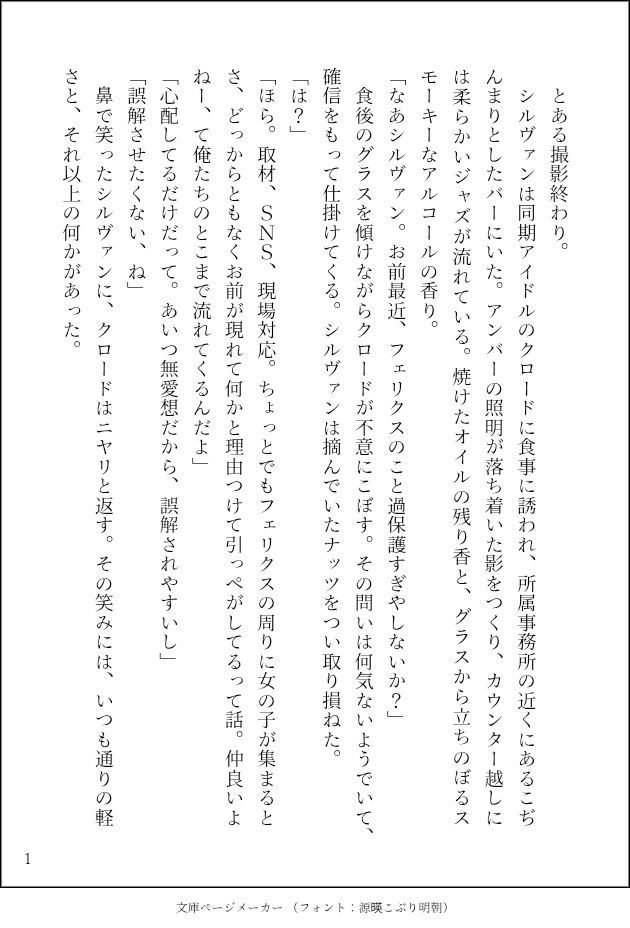 とある撮影終わり。
シルヴァンは同期アイドルのクロードに食事に誘われ、所属事務所の近くにあるこぢ
んまりとしたバーにいた。アンバーの照明が落ち着いた影をつくり、カウンター越しに
は柔らかいジャズが流れている。焼けたオイルの残り香と、グラスから立ちのぼるス
モーキーなアルコールの香り。
「なあシルヴァン。お前最近、フェリクスのこと過保護すぎやしないか？」
食後のグラスを傾けながらクロードが不意にこぼす。その問いは何気ないようでいて、
確信をもって仕掛けてくる。シルヴァンは摘んでいたナッツをつい取り損ねた。
「は？」
「ほら。取材、ＳＮＳ、現場対応。ちょっとでもフェリクスの周りに女の子が集まると
さ、どっからともなくお前が現れて何かと理由つけて引っぺがしてるって話。仲良いよ
ねー、て俺たちのとこまで流れてくるんだよ」
「心配してるだけだって。あいつ無愛想だから、誤解されやすいし」
「誤解させたくない、ね」
鼻で笑ったシルヴァンに、クロードはニヤリと返す。その笑みには、いつも通りの軽
さと、それ以上の何かがあった。
1
文庫ページメーカー（フォント：源暎こぶり明朝）